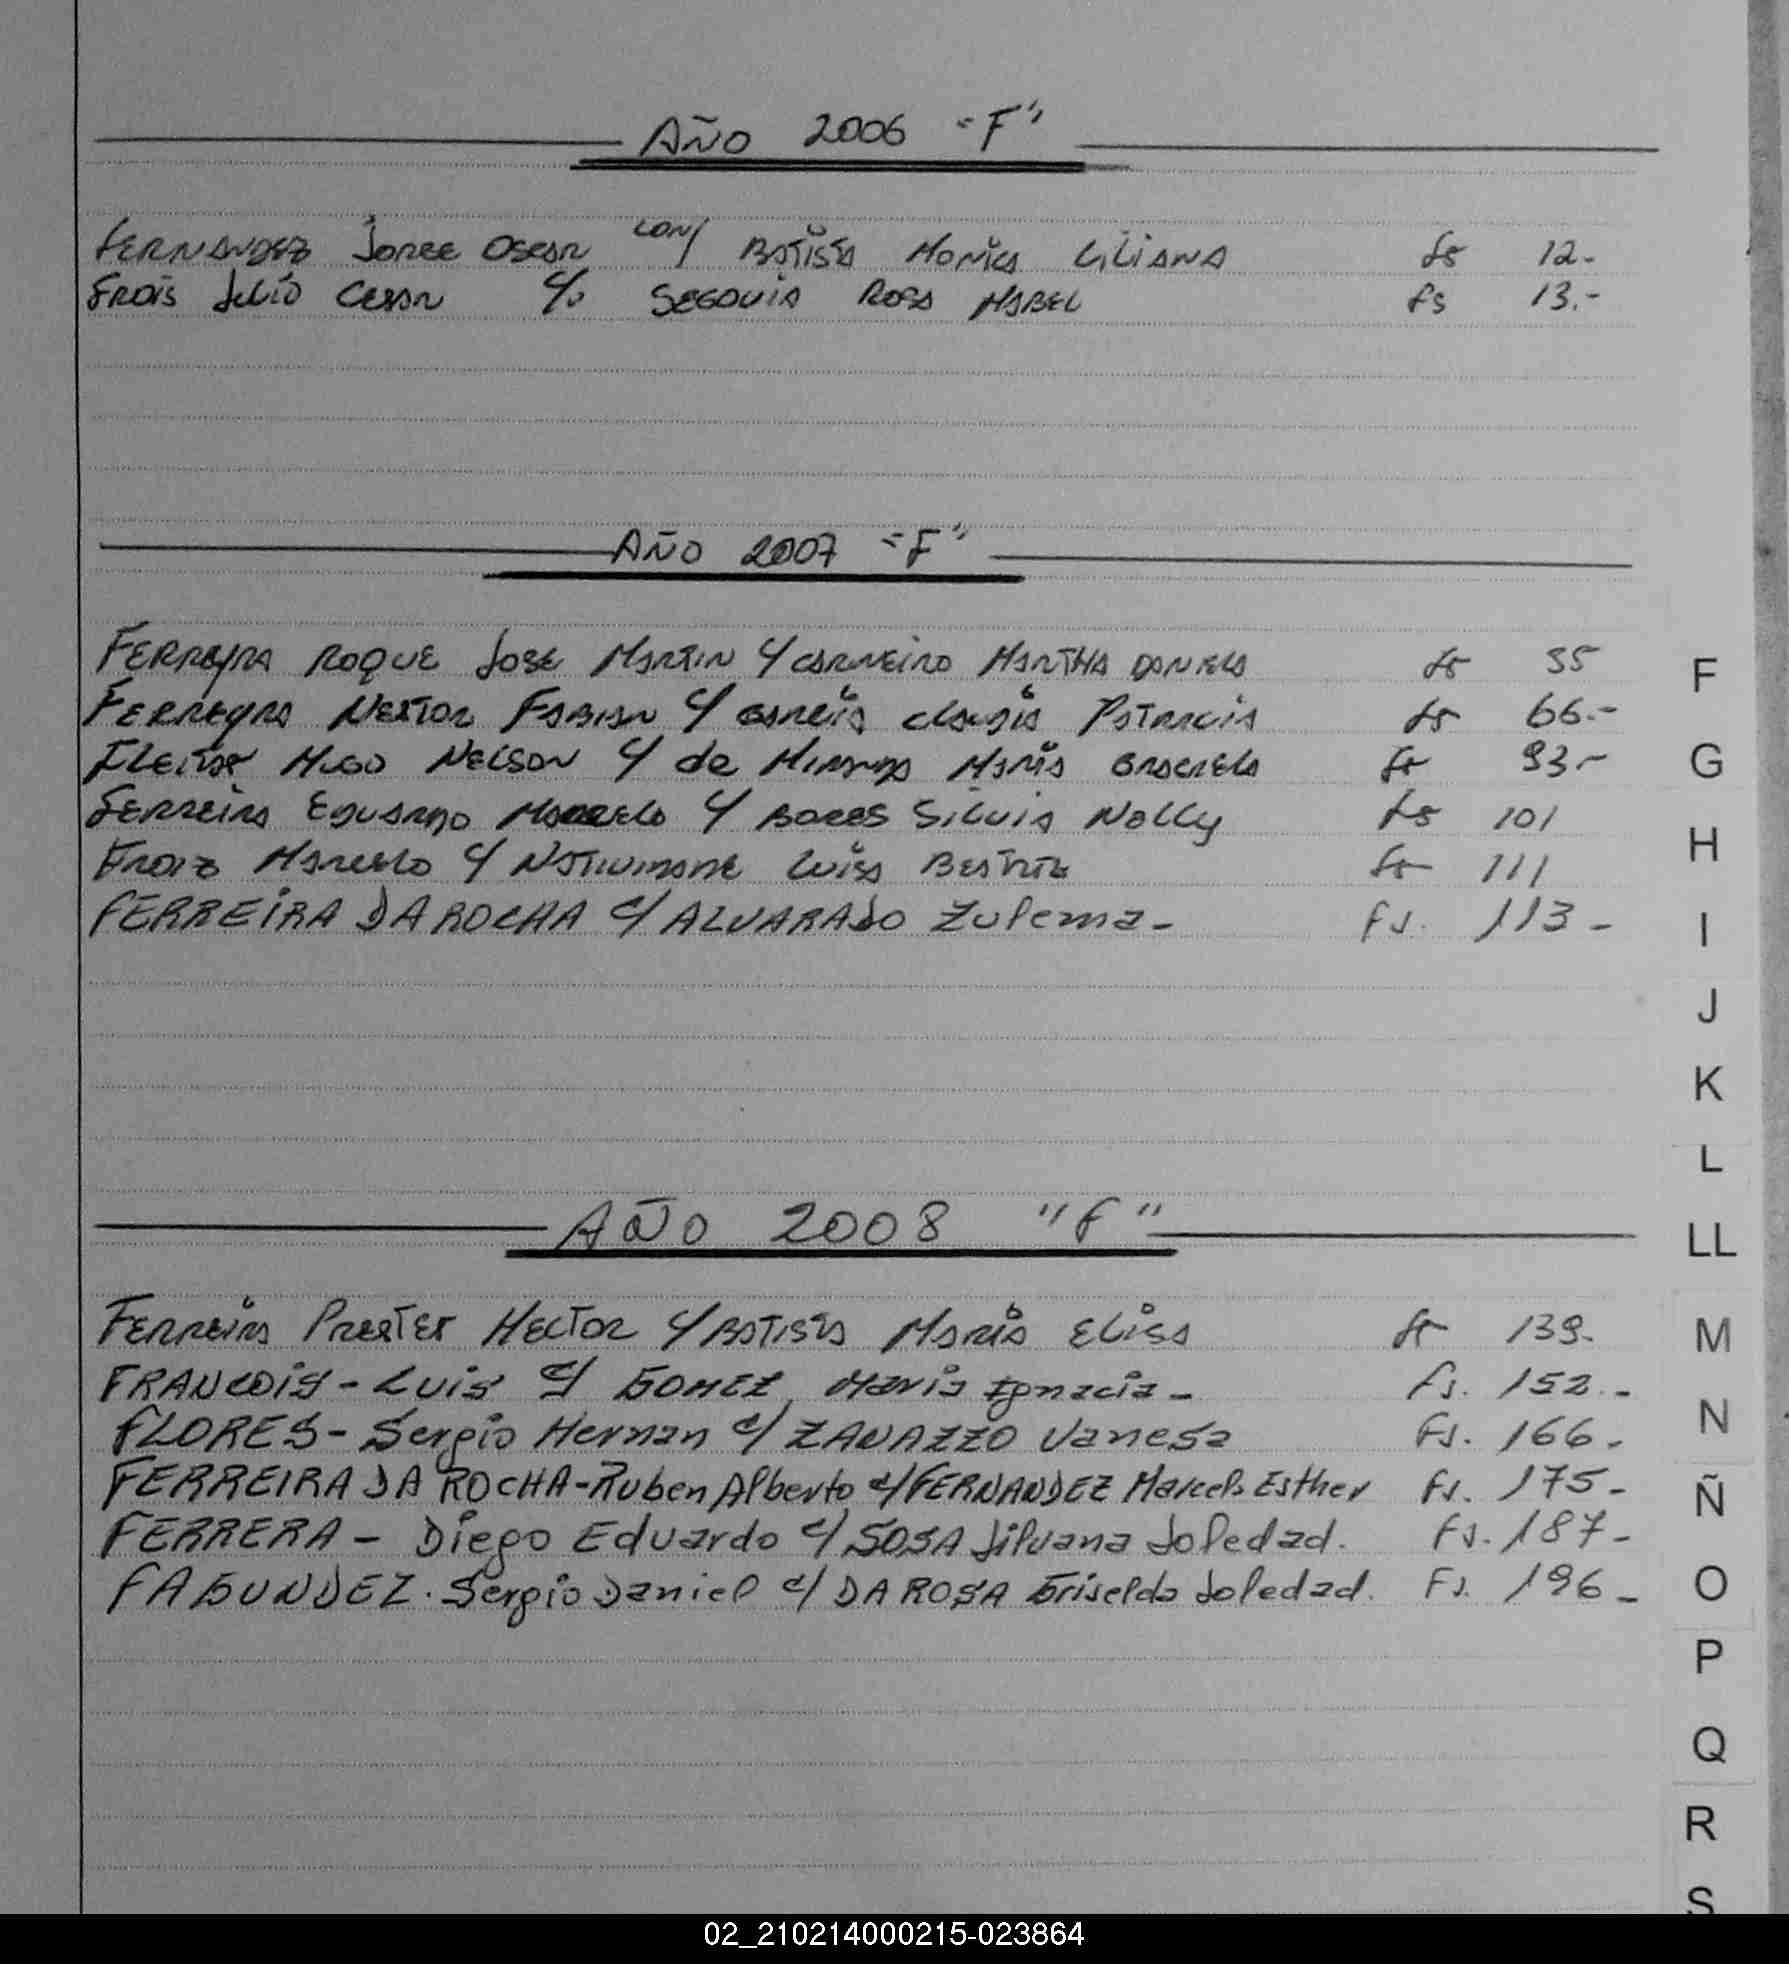 AÑO 2006 "F"
FERNANDEZ JORGE OSCAR con/ BATISTA MONICA LILIANA fs 12.-
FROIS JULIO CESAR c/ SEGOVIA ROSA MABEL fs 13.-
AÑO 2007 "F"
FERREYRA ROQUE JOSE MARTIN c/ CARNEIRO MARTHA DANIELA fs 55
FERREYRA NESTOR FABIAN c/ GARCIA CLAUDIA PATRICIA fs 66.-
FLEITAS HUGO NELSON c/ de MIRANDA MARIA GRACIELA fs 93-
FERREIRA EDUARDO MARCELO c/ BORGES SILVIA NELLY fs 101
FROIZ MARCELO c/ LUISA BEATRIZ fs 111
FERREIRA DA ROCHA c/ ALVARADO Zulema- Fs. 113-
AÑO 2008 "F"
FERREIRA PRESTES HECTOR c/ BATISTA MARIA ELISA fs 139.
FRANCOIS - Luis c/ GOMEZ, Maria Ignacia- Fs. 152.-
FLORES - Sergio Hernan c/ ZANAZZO Vanesa Fs. 166.
FERREIRA DA ROCHA - Ruben Alberto c/ FERNANDEZ Marcela Esther Fs. 175-
FERRERA - Diego Eduardo c/ SOSA Silvana Soledad. Fs. 187-
FAGUNDEZ. Sergio Daniel c/ DA ROSA Griselda Soledad. Fs. 196-
F
G
H
I
J
K
L
LL
M
N
Ñ
O
P
Q
R
S
02_210214000215-023864